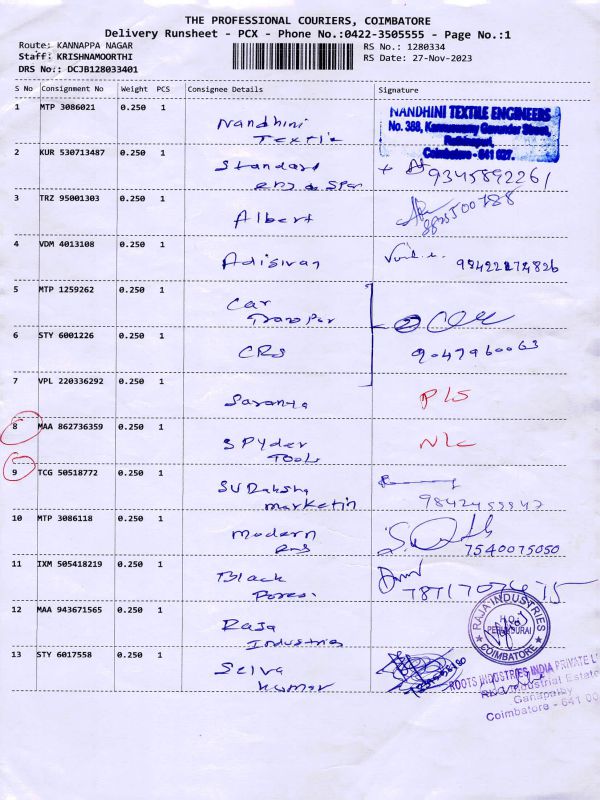 THE PROFESSIONAL COURIERS, COIMBATORE
Delivery Runsheet - PCX - Phone No.:0422-3505555 - Page No.:1
Route: KANNAPPA NAGAR
RS No.: 1280334
Staff: KRISHNAMOORTHI
RS Date: 27-Nov-2023
DRS No.: DCJB128033401
S No Consignment No Weight PCS Consignee Details Signature
1 MTP 3086021 0.250 1
Nandhini
NANDHINI TEXTILE ENGINEERS
No. 388, Kannuswamy Gounder Street,
Coimbatore - 641 027.
2 KUR 530713487 0.250 1
Standard
9345892261
3 TRZ 95001303 0.250 1
Albert
4 VDM 4013108 0.250 1
Adisivan
5 MTP 1259262 0.250 1
Car
6 STY 6001226 0.250 1
CRS
9047960063
7 VPL 220336292 0.250 1
Saranya
8 MAA 862736359 0.250 1
Spyder
Tools
9 TCG 50518772 0.250 1
Suraksha
marketin
10 MTP 3086118 0.250 1
modern
7540075050
11 IXM 505418219 0.250 1
Black
12 MAA 943671565 0.250 1
Raja
Industries
RAJA INDUSTRIES
COIMBATORE
13 STY 6017558 0.250 1
Selva
kumar
ROOTS INDUSTRIES INDIA PRIVATE L
Industrial Estate
Ganapathy
Coimbatore - 641 00